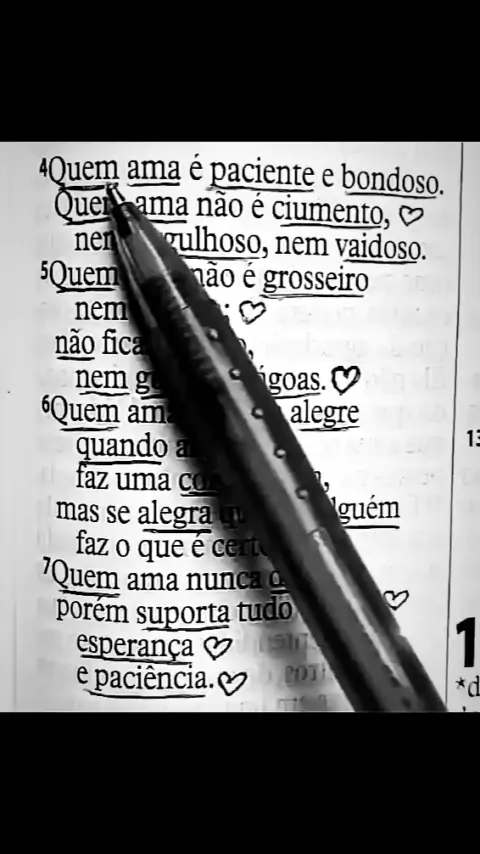 4Quem ama é paciente e bondoso.
Quem ama não é ciumento,
nem gulhoso, nem vaidoso.
5Quem não é grosseiro
nem
não fica
nem goas.
6Quem ama alegre
quando
faz uma
mas se alegra alguém
faz o que é certo
7Quem ama nunca
porém suporta tudo
esperança
e paciência.
13
1
*d